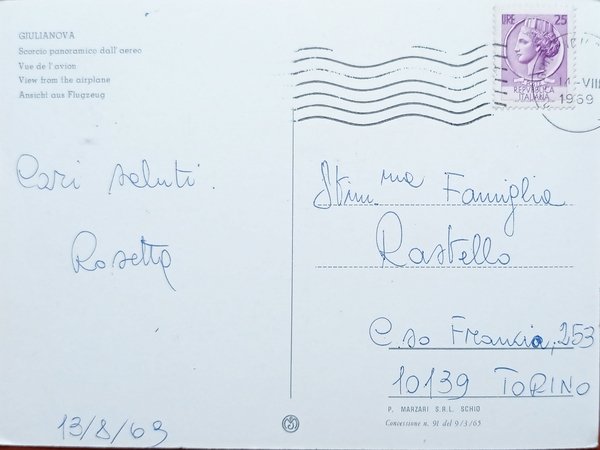 GIULIANOVA
Scorcio panoramico dall'aereo
Vue de l'avion
View from the airplane
Ansicht aus Flugzeug
LIRE 25
POSTE
REPVBBLICA
ITALIANA
14-VIII
1969
Cari saluti.
Rosetta
13/8/69
Stim.ma Famiglia
Rastello
C.so Francia, 253
10139 TORINO
P. MARZARI S.R.L. SCHIO
Concessione n. 91 del 9/3/65